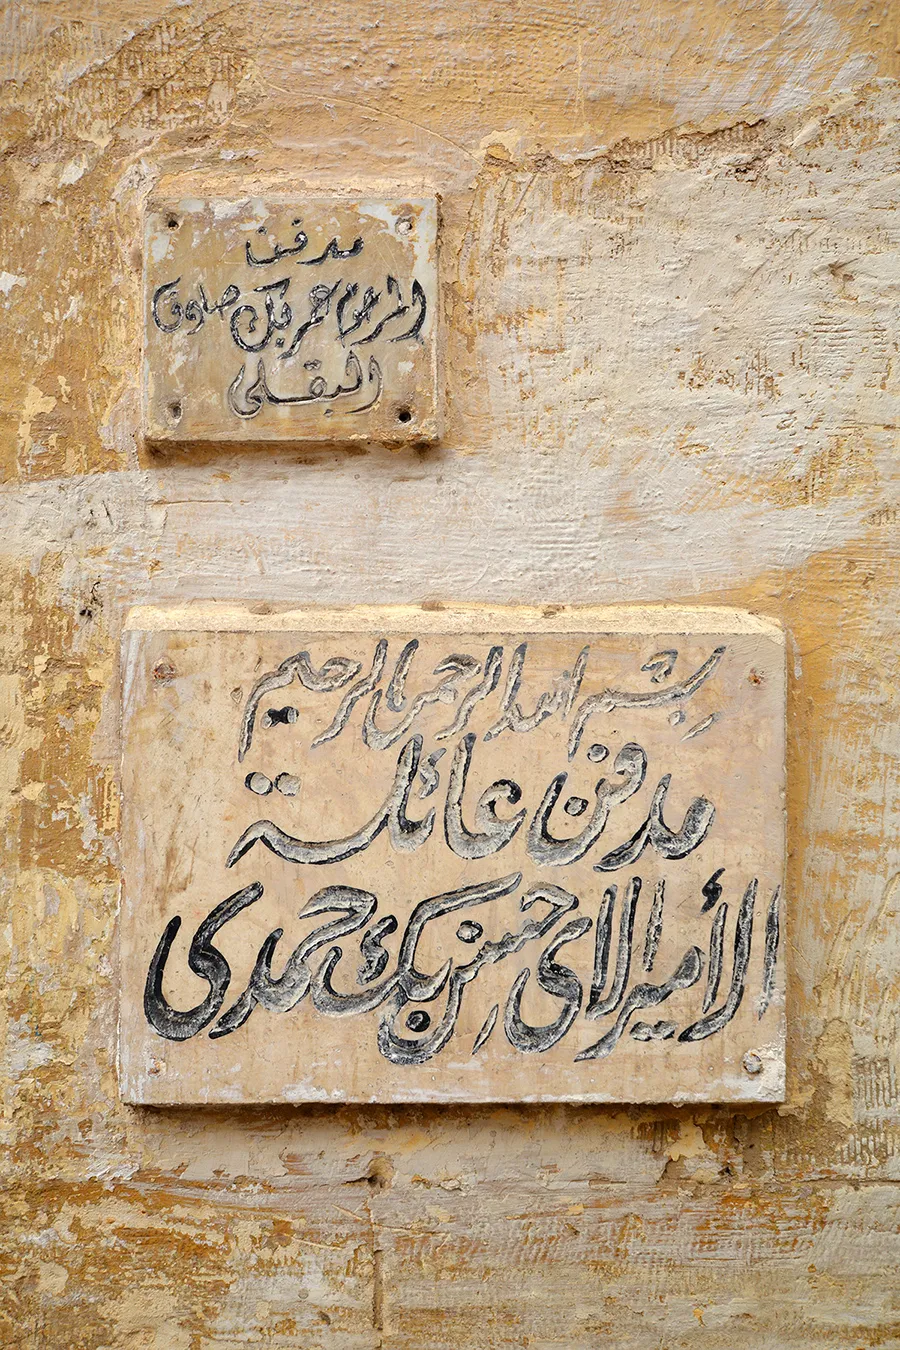 مدفن
المرحوم عمر بك صادق
البقلى
بسم الله الرحمن الرحيم
مدفن عائلة
الأميرالاى حسن بك حمدى